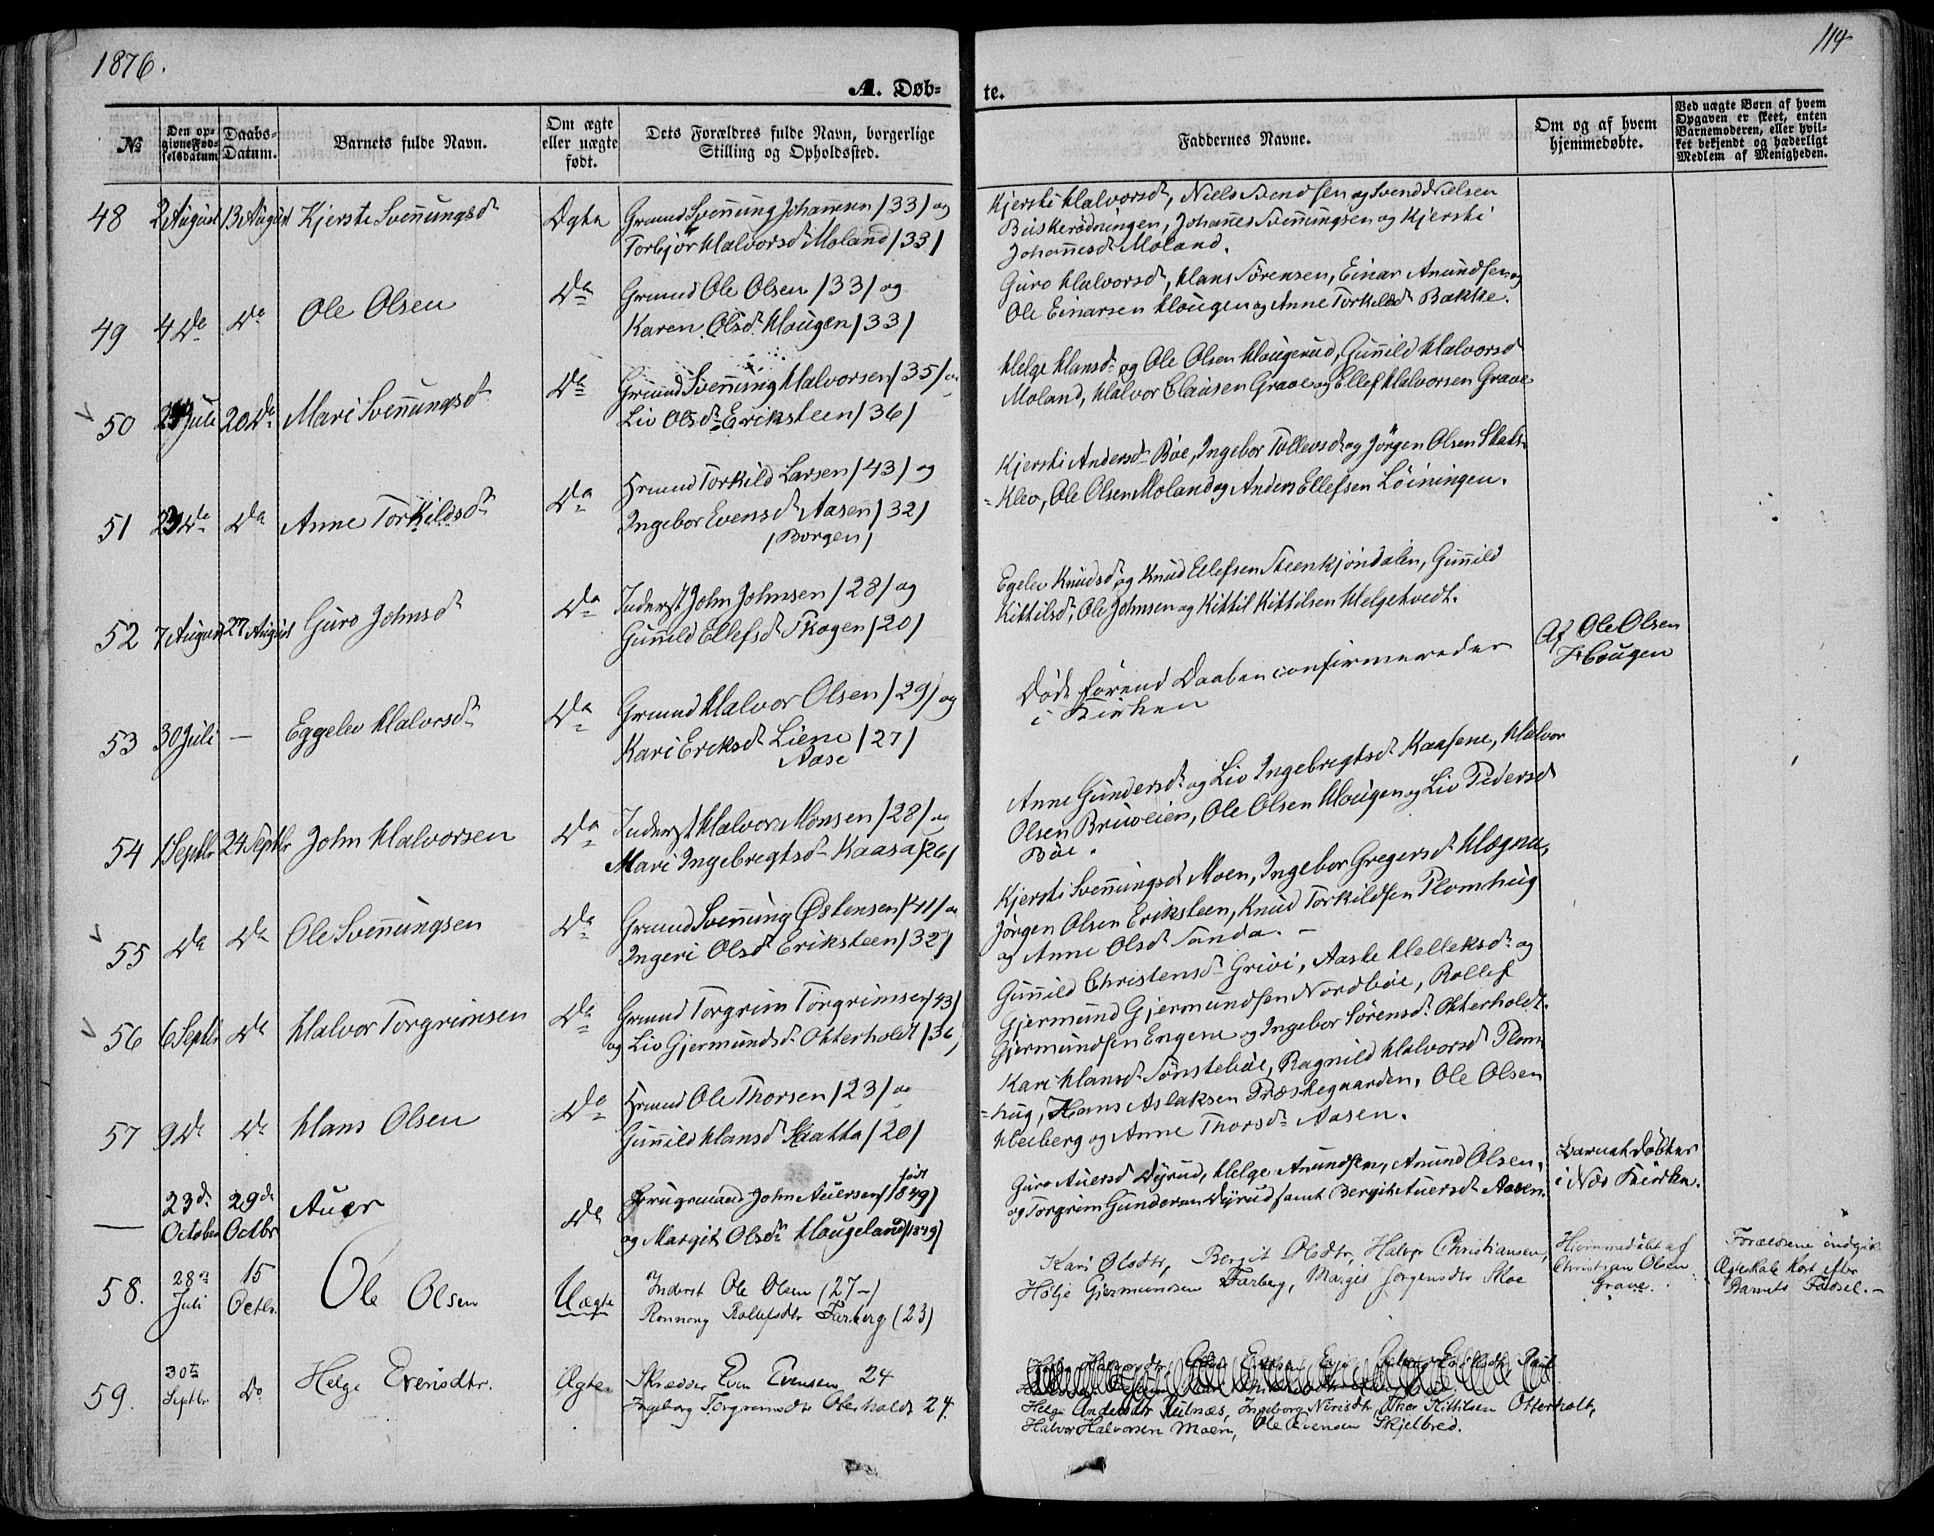 1876.
114
A. Døb-
te.
№
Den op-
givne Fød-
selsdatum
Daabs-
Datum.
Barnets fulde Navn.
Om ægte
eller uægte
født.
Dets Forældres fulde Navn, borgerlige
Stilling og Opholdssted.
Faddernes Navne.
Om og af hvem
hjemmedøbte.
Ved uægte Børn af hvem
Opgaven er skeet, enten
Barnemoderen, eller hvil-
ket bekjendt og hæderligt
Medlem af Menigheden.
48 2 August 13 August Kjersti Svennungsd Ægte Grmnd Svennung Johannesen /33/ og
Torbjör Halvorsd Moland /33/
Kjersti Halvorsd, Niels Svendsen og Svend Nielsen
Buskerødningen, Johannes Svennungsen og Kjersti
Johannesd Moland.
49 4 Do Do Ole Olsen Do Grmnd Ole Olsen /33/ og
Karen Olsd Hougen /33/
Guro Halvorsd, Hans Sørensen, Einar Anundsen og
Ole Einarsen Hougen og Anne Torkildsd Bakke.
50 Juli 20 Do Mari Svennungsd Do Grmnd Svennung Halvorsen /35/ og
Liv Olsd Eriksteen /36/
Helge Hansd og Ole Olsen Hougerud, Gunild Halvorsd
Moland, Halvor Claüsen Grave og Ellef Halvorsen Grave
51 Do Do Anne Torkildsd Do Grmnd Torkild Larsen /43/ og
Ingebor Evensd Aasen /32/
/Borgen/
Kjersti Andersd Bøe, Ingebor Tollevsd og Jörgen Olsen Skats-
-Klev, Ole Olsen Moland og Anders Ellefsen Löiningen.
52 7 August 27 August Guro Johnsd Do Inderst John Johnsen /28/ og
Gunild Ellefsd Skogen /20/
Egelev Knudsd og Knud Ellefsen Steenkjöndalen, Gunild
Kittilsd, Ole Johnsen og Kittil Kittilsen Helgetvedt.
53 30 Juli — Eggelev Halvorsd Do Grmnd Halvor Olsen /29/ og
Kari Eriksd Liene /27/
Aase
Død förend Daaben confirmeredes
i Kirken
Af Ole Olsen
Hougen
54 1 Septbr 24 Septbr John Halvorsen Do Inderst Halvor Monsen /28/ og
Mari Ingebregtsd Kaasa /26/
Anne Gundersd og Liv Ingebregtsd Kaasene, Halvor
Olsen Bruveien, Ole Olsen Hougen og Liv Pedersd
Böe.
55 Do Do Ole Svennungsen Do Grmnd Svennung Østensen /41/ og
Ingeri Olsd Eriksteen /32/
Kjersti Svennungsd Moen, Ingebor Gregersd Hægna,
Jörgen Olsen Eriksteen, Knud Torkildsen Plomhug
og Anne Olsd Sanda. —
56 6 Septbr Do Halvor Torgrimsen Do Grmnd Torgrim Torgrimsen /43/
og Liv Gjermundsd Otterholdt /36/
Gunild Christensd Grivi, Aaste Helleksd og
Gjermund Gjermundsen Nordbøe, Rollef
Gjermundsen Engene og Ingebor Sörensd Otterholdt.
57 9 Do Do Hans Olsen Do Grmnd Ole Thorsen /23/ og
Gunild Hansd Skatta /20/
Kari Hansd Sönsteböe, Ragnild Halvorsd Plom-
-hug, Hans Aslaksen Præstegaarden, Ole Olsen
Heiberg og Anne Thorsd Aasen.
— 23de
October 29de
Octbr Auer Do Brugsmand John Auersen /född 1849/
og Margit Olsdr Hougeland /1849/
Guro Auersd Dyrud, Helge Anundsen, Anund Olsen,
og Torgrim Gundersen Dyrud samt Bergit Auersd Aasen.
Barnet döbtes
i Næs Kirke.
58. 28de
Juli 15
Octbr. Ole Olsen Uægte Inderst Ole Olsen (27-)
Ronnoug Rollefsdtr Farberg (23)
Kari Olsdtr, Bergit Olsdtr, Halvor Christiansen,
Helje Gjermundsen Farberg, Margit Jørgensdtr Skoe
Hjemmedöbt af
Christian Olsen
Grave.
Forældrene indgik
Ægteskab kort efter
Barnets Fødsel. —
59. 30te
Septbr Do Helge Evensdtr. Ægte. Skrædder Even Evensen 24
Ingeborg Torgrimsdtr Otterholdt 24.
Helge Andersdtr Rulnæs, Ingeborg Nirisdtr, Thor Kittilsen Otterholt,
Halvor Halvorsen Moen, Ole Evensen Skjelbred.